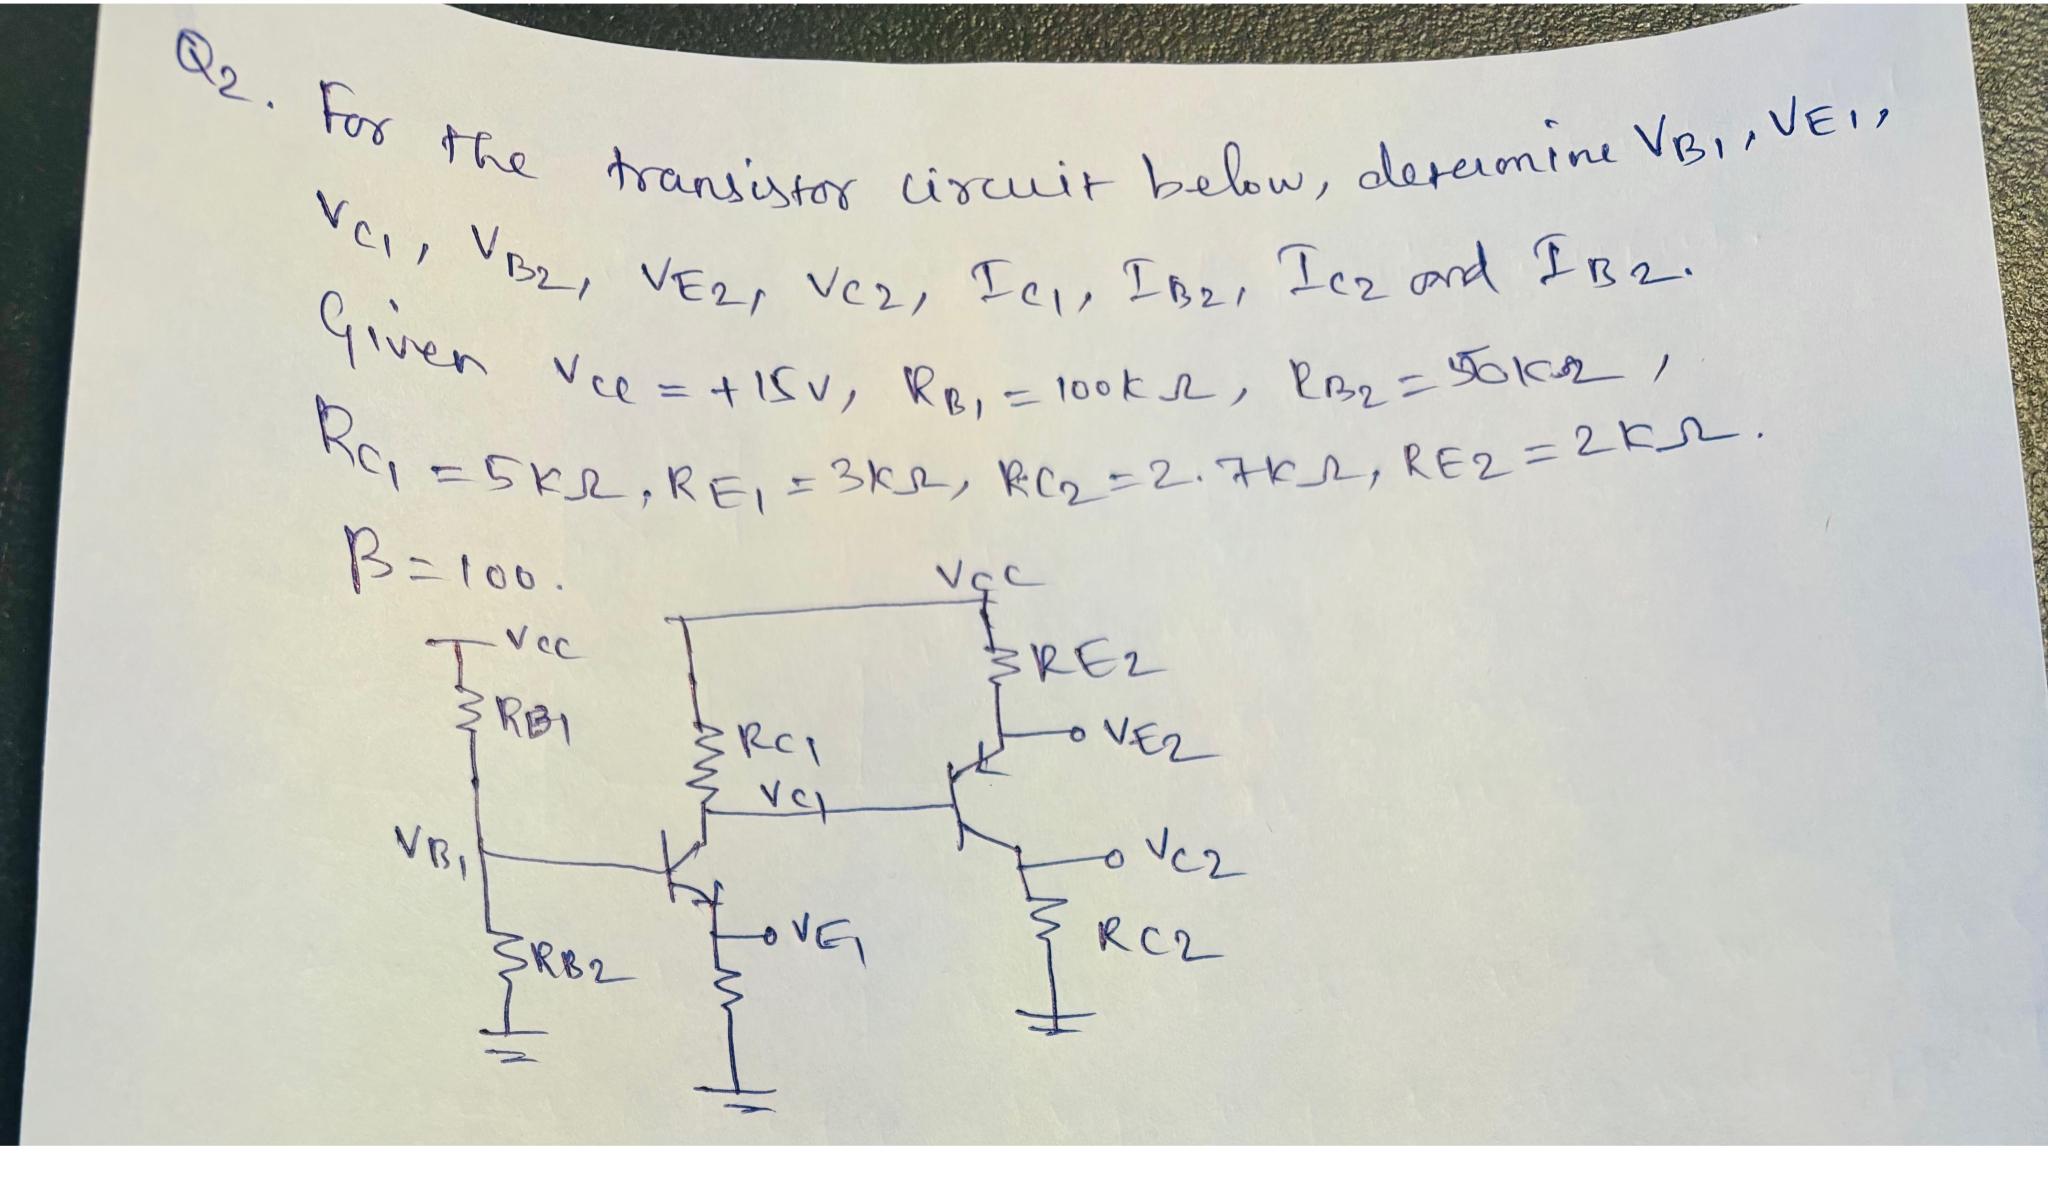 Q2. For the transistor circuit below, determine VB1, VE1,
VC1, VB2, VE2, VC2, IC1, IB2, IC2 and IB2.
Given Vcc = +15V, RB1 = 100KΩ, RB2 = 50KΩ,
RC1 = 5KΩ, RE1 = 3KΩ, RC2 = 2.7KΩ, RE2 = 2KΩ.
β = 100.
VCC
VCC
RE2
RB1
RC1
VE2
VC1
VB1
VC2
VE1
RC2
RB2